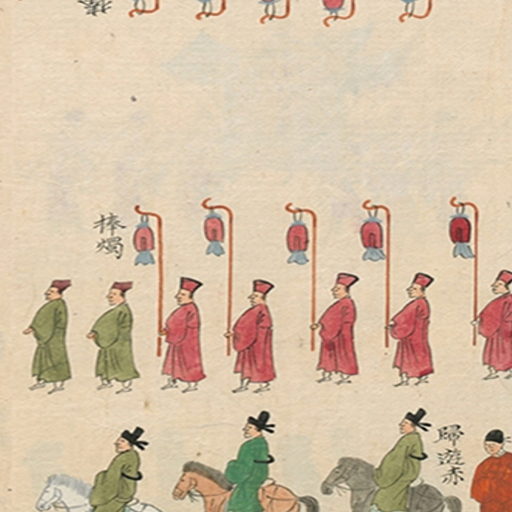 捧燭
歸遊赤